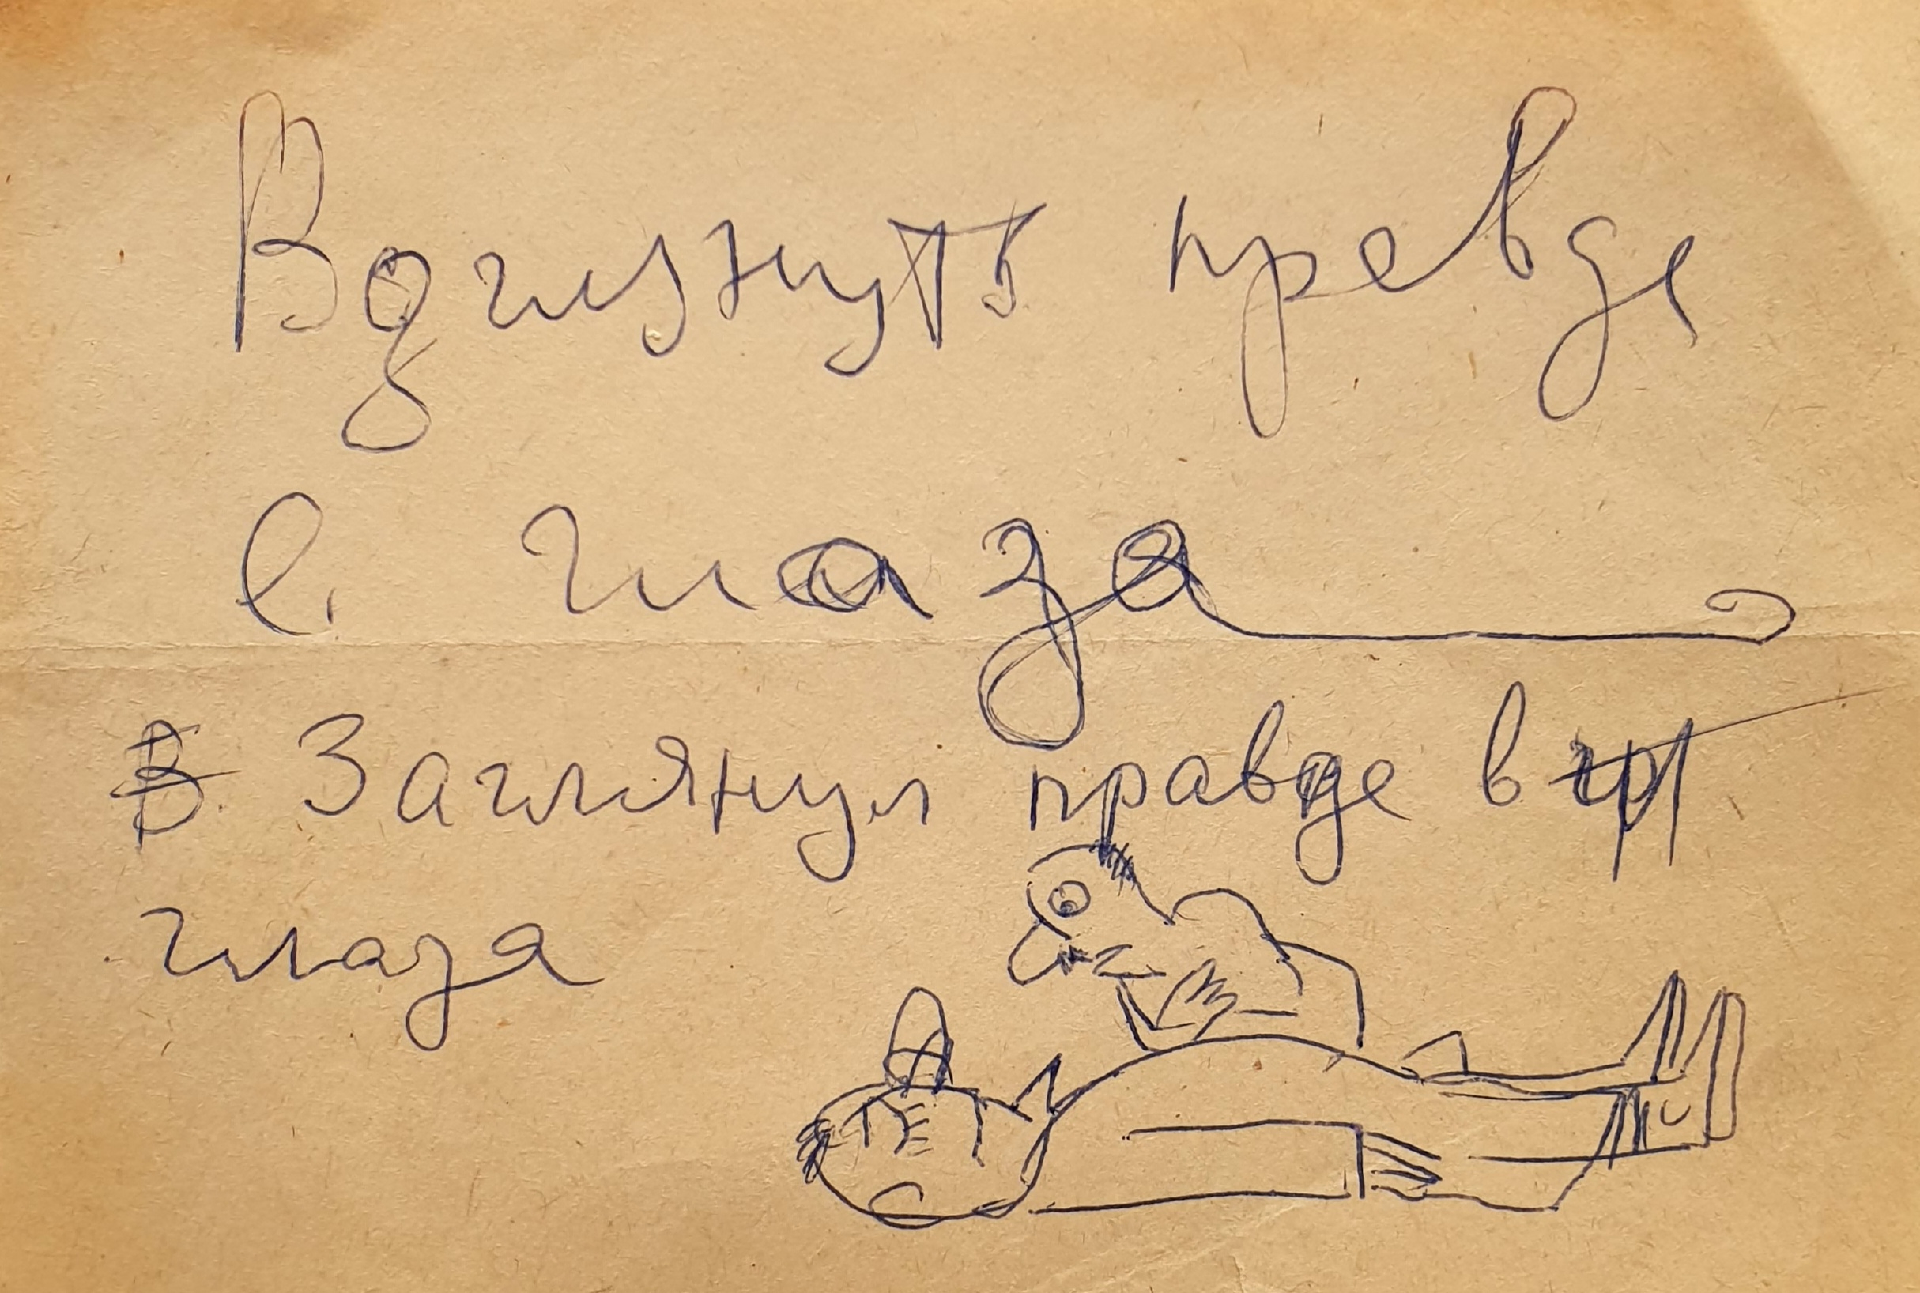 Взглянуть правде
в глаза
Заглянул правде в
глаза